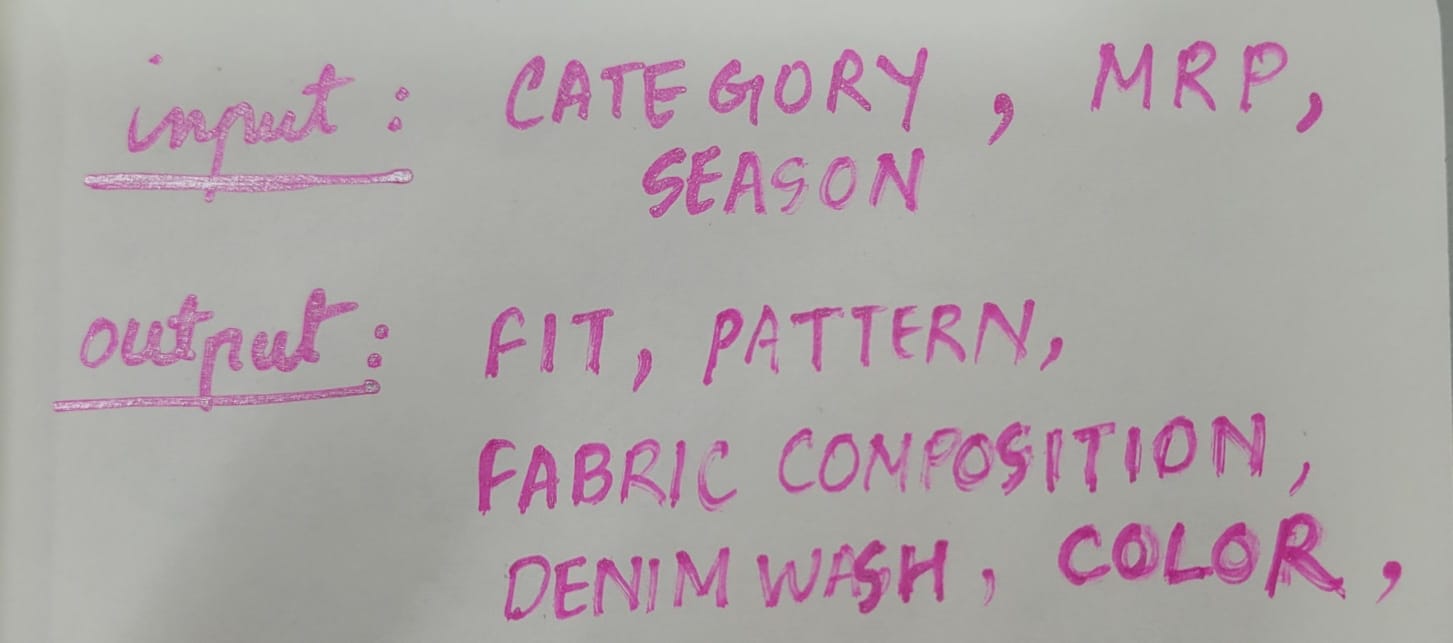 input : CATEGORY , MRP,
SEASON
output : FIT, PATTERN,
FABRIC COMPOSITION,
DENIM WASH, COLOR,